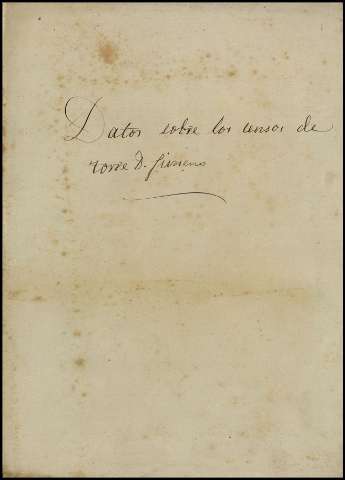 Datos sobre los censos de
torre D. Jimeno